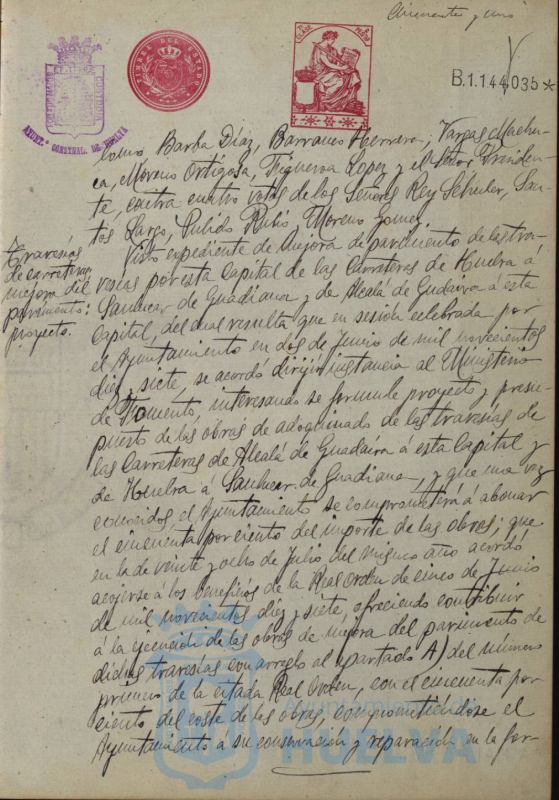 Cincuenta y uno
TIMBRE DEL ESTADO
B.1.144.035 *
AYUNT. CONSTNAL. DE HUELVA
Como Barba Díaz, Barranco Herrera, Vargas Machu-
ca, Moreno Ortigosa, Figueroa Lopez y el Señor Presiden-
te, contra cuatro votos de los Señores Rey Scheuler, San-
tos Largo, Pulido Rubio, Moreno Gomez
Travesías
de carreteras
mejora del
pavimento:
proyecto.
Visto expediente de mejora de pavimento de las tra-
vesías por esta Capital de las Carreteras de Huelva á
Sanlucar de Guadiana y de Alcalá de Guadaira á esta
Capital, del cual resulta que en sesión celebrada por
el Ayuntamiento en dos de Junio de mil novecientos
diez y siete, se acordó dirigir instancia al Ministerio
de Fomento, interesando se formule proyecto y presu-
puesto de las obras de adoquinado de las travesías de
las Carreteras de Alcalá de Guadaira á esta Capital y
de Huelva á Sanlucar de Guadiana y que una vez
conocidos el Ayuntamiento se comprometerá á abonar
el cincuenta por ciento del importe de las obras; que
en la de veinte y ocho de Julio del mismo año acordó
acojerse á los beneficios de la Real Orden de cinco de Junio
de mil novecientos diez y siete, ofreciendo contribuir
á la ejecución de las obras de mejora del pavimento de
dichas travesías con arreglo al apartado A) del número
primero de la citada Real Orden, con el cincuenta por
ciento del coste de las obras, comprometiéndose el
Ayuntamiento á su conservación y reparación en la for-
Ayuntamiento de
HUELVA